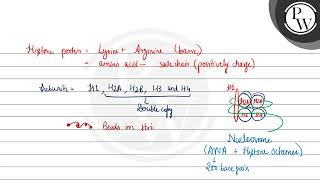 PW
Histone protein = Lysine + Arginine (basic)
= amino acid — side chain (positively charge)
Subunits = H1, H2A, H2B, H3 and H4
Double copy
Beads on stri
H1
Nucleosome
(DNA + Histone Octamer)
200 base pairs